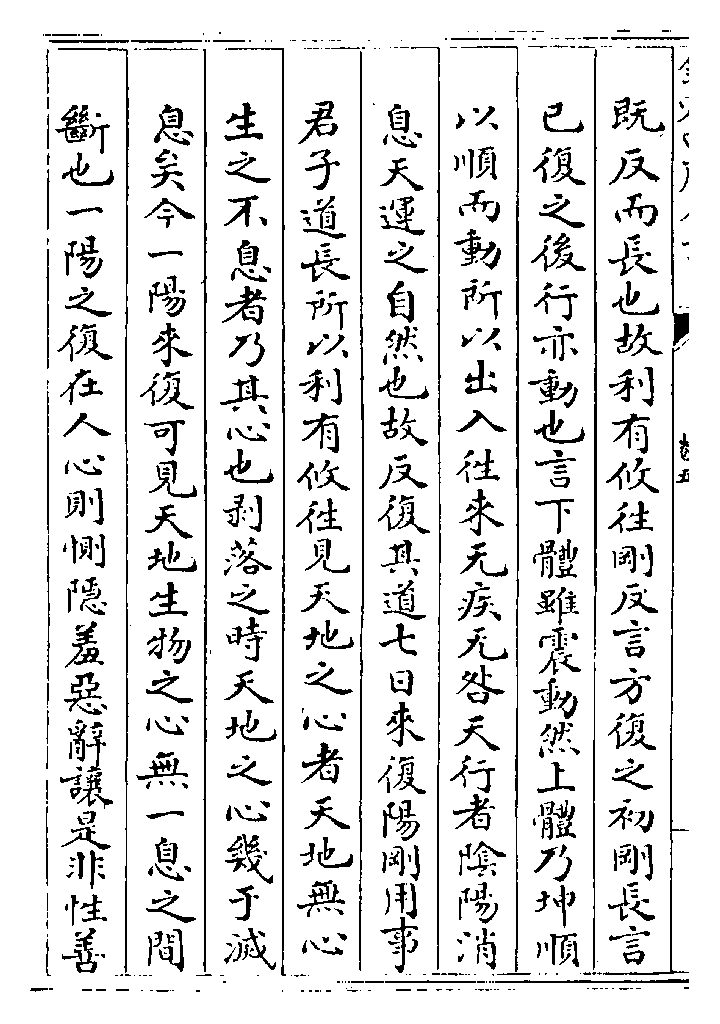 既反而長也故利有攸往剛反言方復之初剛長言
已復之後行亦動也言下體雖震動然上體乃坤順
以順而動所以出入往来无疾无咎天行者隂陽消
息天運之自然也故反復其道七日來復陽剛用事
君子道長所以利有攸往見天地之心者天地無心
生之不息者乃其心也剥落之時天地之心幾于滅
息矣今一陽來復可見天地生物之心無一息之間
斷也一陽之復在人心則惻隠羞惡辭讓是非性善